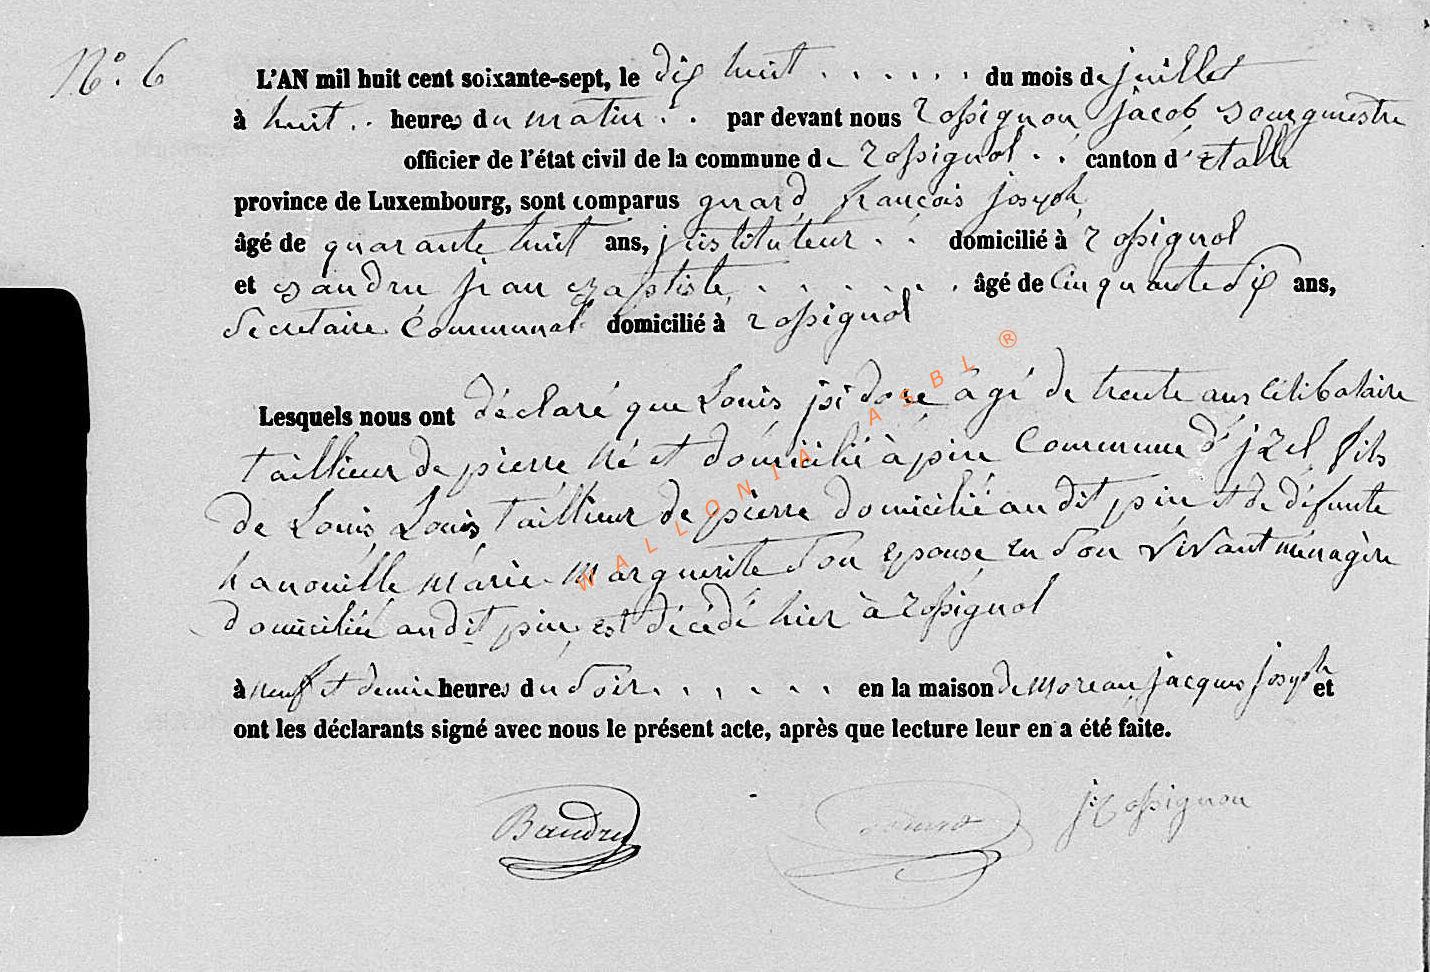 N° 6
L'AN mil huit cent soixante-sept, le dix huit . . . . . . du mois de juillet
à huit . . heures du matin . . par devant nous rossignon jacob Bourgmestre
officier de l'état civil de la commune de rossignol . . canton d'Etalle
province de Luxembourg, sont comparus françois joseph
âgé de quarante huit ans, jnstituteur . . domicilié à rossignol
et Baudru jean Baptiste . . . . . . âgé de Cinquante Six ans,
Secretaire Communal domicilié à rossignol
Lesquels nous ont déclaré que Louis jsidore âgé de trente ans Célibataire
taillieur de pierre né et domicilié à pin Commune d'jzel fils
de Louis Louis taillieur de pierre domicilié audit pin et de défunte
hanouille marie Marguerite Son epouse en Son vivant ménagère
domiciliée audit pin, est décédé hier à rossignol
à neuf et demie heures du Soir . . . . . . en la maison de Moreau jacques joseph et
ont les déclarants signé avec nous le présent acte, après que lecture leur en a été faite.
Baudru
j: rossignon
WALLONIA ASBL ®